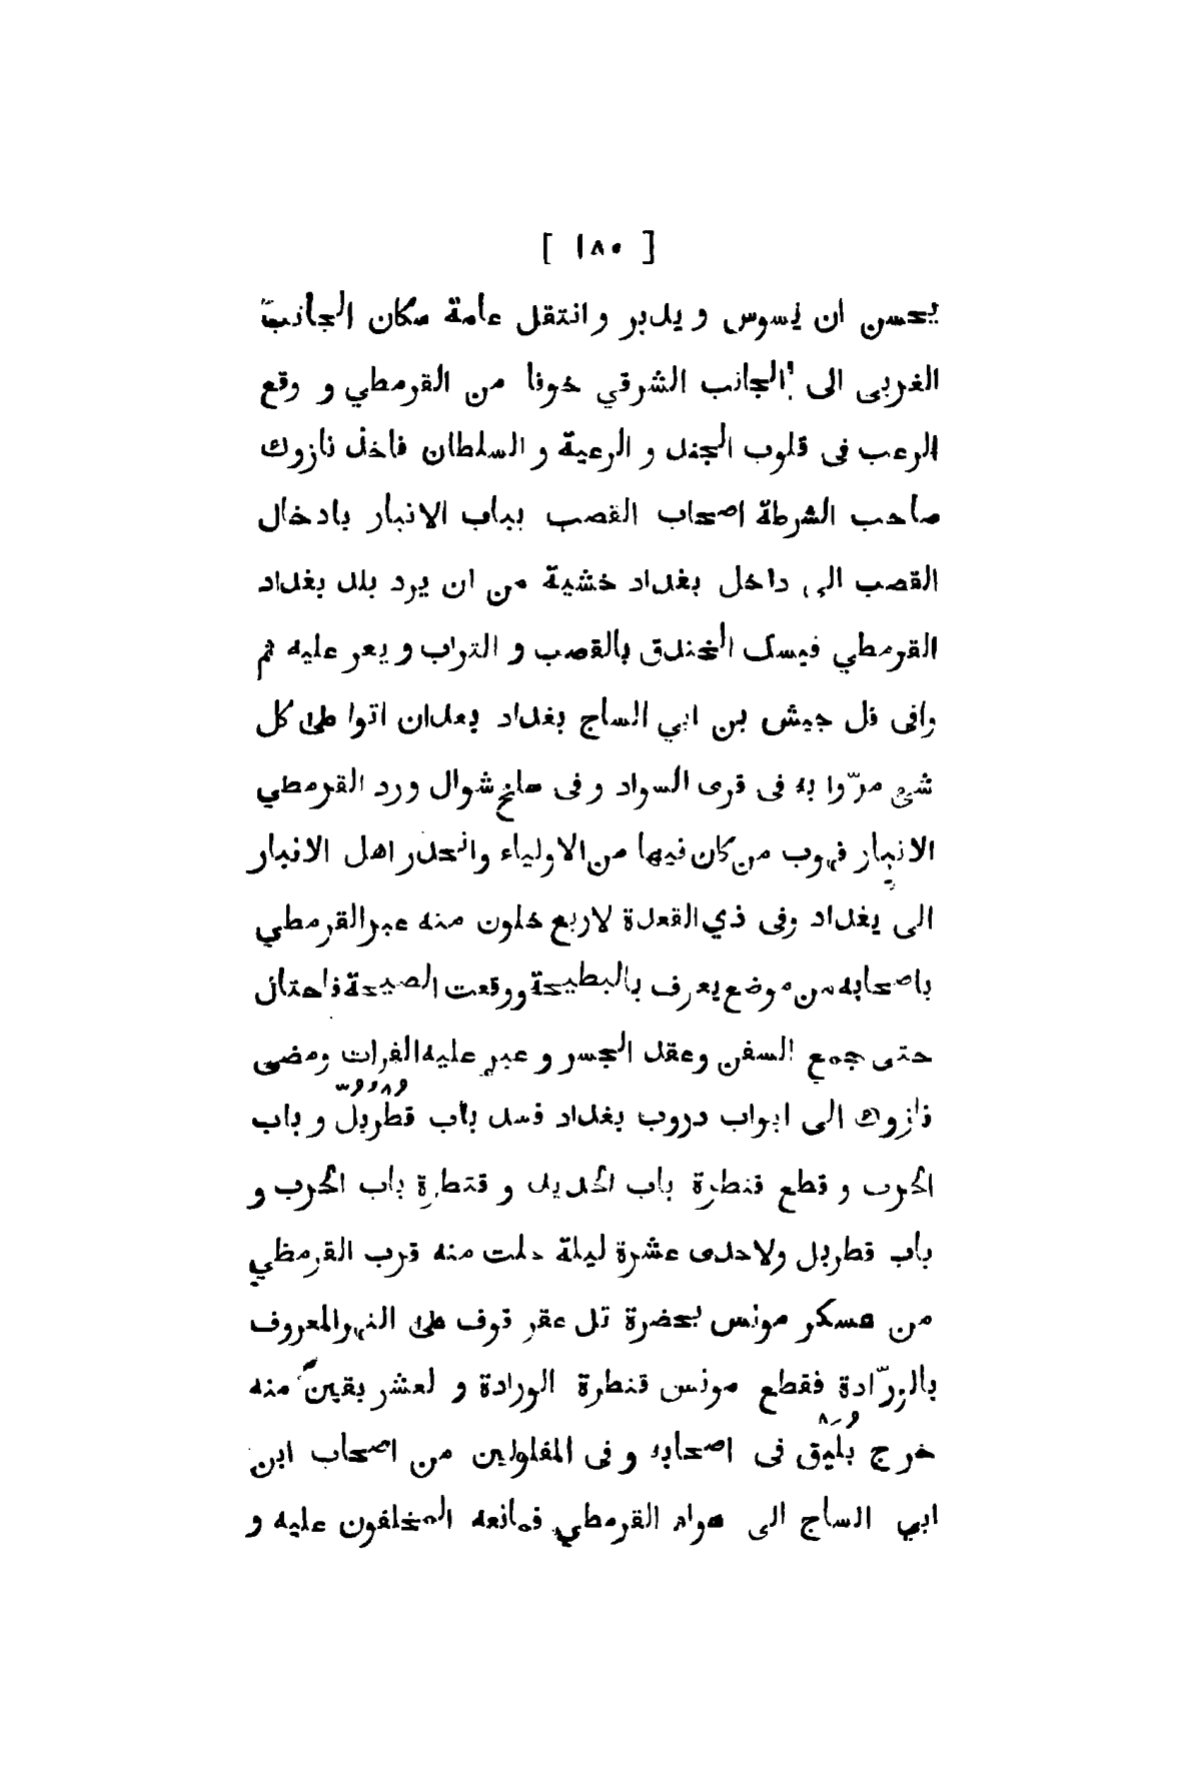 [ ١٨٠ ]
يحسن ان يسوس و يدبر و انتقل عامة سكان الجانب
الغربى الى الجانب الشرقي خوفا من القرمطي و وقع
الرعب فى قلوب الجند و الرعية و السلطان فاخذ نازوك
صاحب الشرطة اصحاب القصب بباب الانبار بادخال
القصب الى داخل بغداد خشية من ان يرد بلد بغداد
القرمطي فيسك الخندق بالقصب و التراب و يعبر عليه ثم
وافى فل جيش بن ابي الساج بغداد بعدان اتوا على كل
شئ مرّوا به فى قرى السواد و فى سلخ شوال ورد القرمطي
الانبار فهرب من كان فيها من الاولياء وانحدر اهل الانبار
الى بغداد وفى ذي القعدة لاربع خلون منه عبر القرمطي
باصحابه من موضع يعرف بالبطيحة ووقعت الصيحة فاحتال
حتى جمع السفن وعقد الجسر و عبر عليه الفرات ومضى
نازوك الى ابواب دروب بغداد فسد باب قُطْرُبُلّ و باب
الحرب و قطع قنطرة باب الحديد و قنطرة باب الحرب و
باب قطربل ولاحدى عشرة ليلة خلت منه قرب القرمطي
من عسكر مونس بحضرة تل عقر قوف على النهر المعروف
بالزرّادة فقطع مونس قنطرة الورادة و لعشر بقين منه
خرج بُلَيْق فى اصحابه و فى المفلولين من اصحاب ابن
ابي الساج الى سواد القرمطي فمانعه المخلفون عليه و